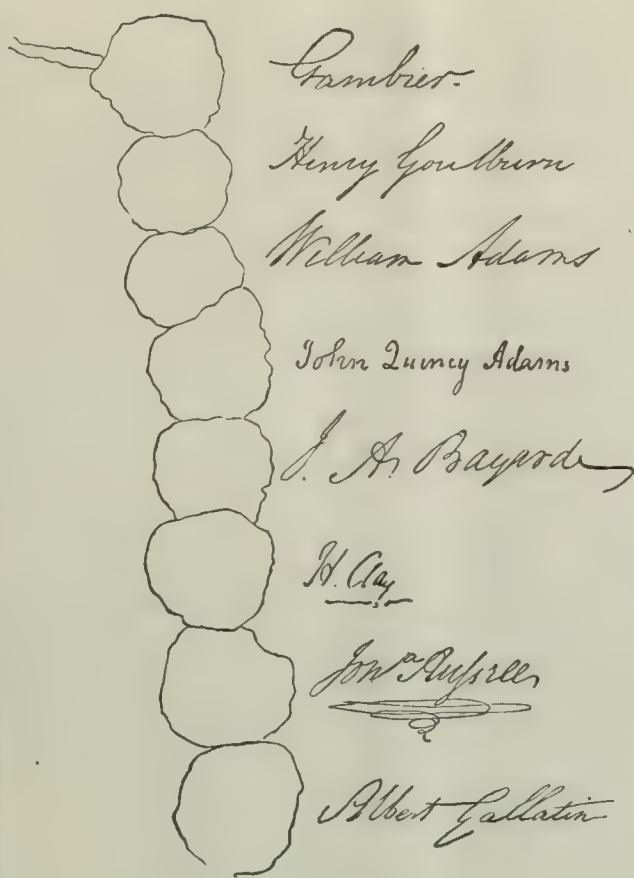 Gambier.
Henry Goulburn
William Adams
John Quincy Adams
J. A. Bayard
H. Clay
Jonᵃ Russell
Albert Gallatin